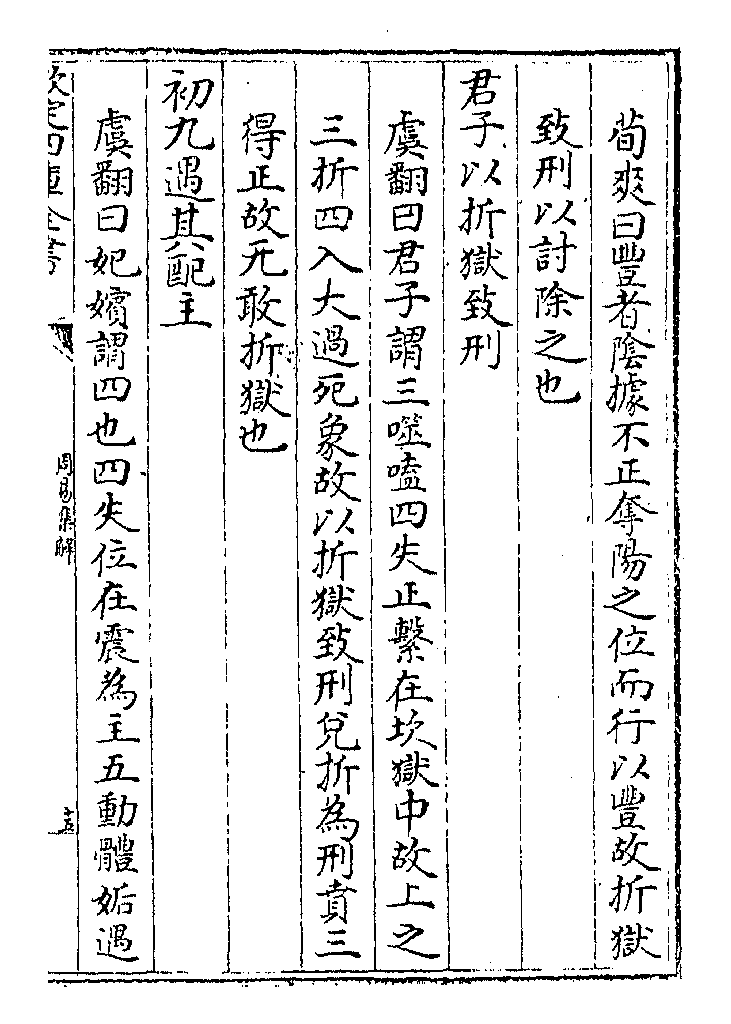 荀爽曰豐者陰據不正奪陽之位而行以豐故折獄
致刑以討除之也
君子以折獄致刑
虞翻曰君子謂三噬嗑四失正繫在坎獄中故上之
三折四入大過死象故以折獄致刑兌折為刑賁三
得正故无敢折獄也
初九遇其配主
虞翻曰妃嬪謂四也四失位在震為主五動體姤遇
欽定四庫全書
周易集解
十五